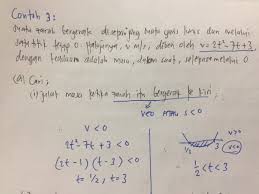 Contoh 3:
Suatu zarah bergerak di sepanjang suatu garis lurus dan melalui
satu titik tetap O. Halajunya, v m/s, diberi oleh v = 2t² - 7t + 3,
dengan keadaan t ialah masa, dalam saat, selepas melalui O
(a) Cari;
(i) julat masa ketika zarah itu bergerak ke kiri,
v < 0
2t² - 7t + 3 < 0
(2t - 1)(t - 3) < 0
t = 1/2, t = 3
v>0
v<0
1/2 3
1/2 < t < 3